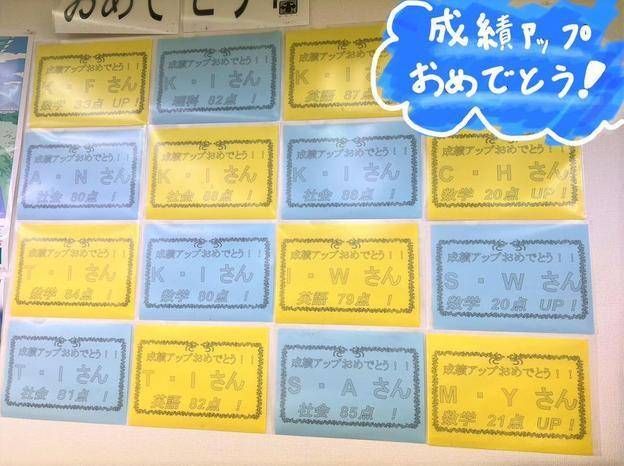 おめでとう！
成績アップ
おめでとう！
成績アップおめでとう！！
K・Fさん
数学 33点 UP！
成績アップおめでとう！！
K・Iさん
理科 82点 ！
成績アップおめでとう！！
K・Iさん
英語 87点
成績アップおめでとう！！
A・Nさん
社会 80点 ！
成績アップおめでとう！！
K・Iさん
社会 88点 ！
成績アップおめでとう！！
K・Iさん
社会 88点 ！
成績アップおめでとう！！
C・Hさん
数学 20点 UP！
成績アップおめでとう！！
T・Iさん
数学 84点 ！
成績アップおめでとう！！
K・Iさん
数学 80点 ！
成績アップおめでとう！！
I・Wさん
英語 79点 ！
成績アップおめでとう！！
S・Wさん
数学 20点 UP！
成績アップおめでとう！！
T・Iさん
社会 81点 ！
成績アップおめでとう！！
T・Iさん
英語 82点 ！
成績アップおめでとう！！
S・Aさん
社会 85点 ！
成績アップおめでとう！！
M・Yさん
数学 21点 UP！